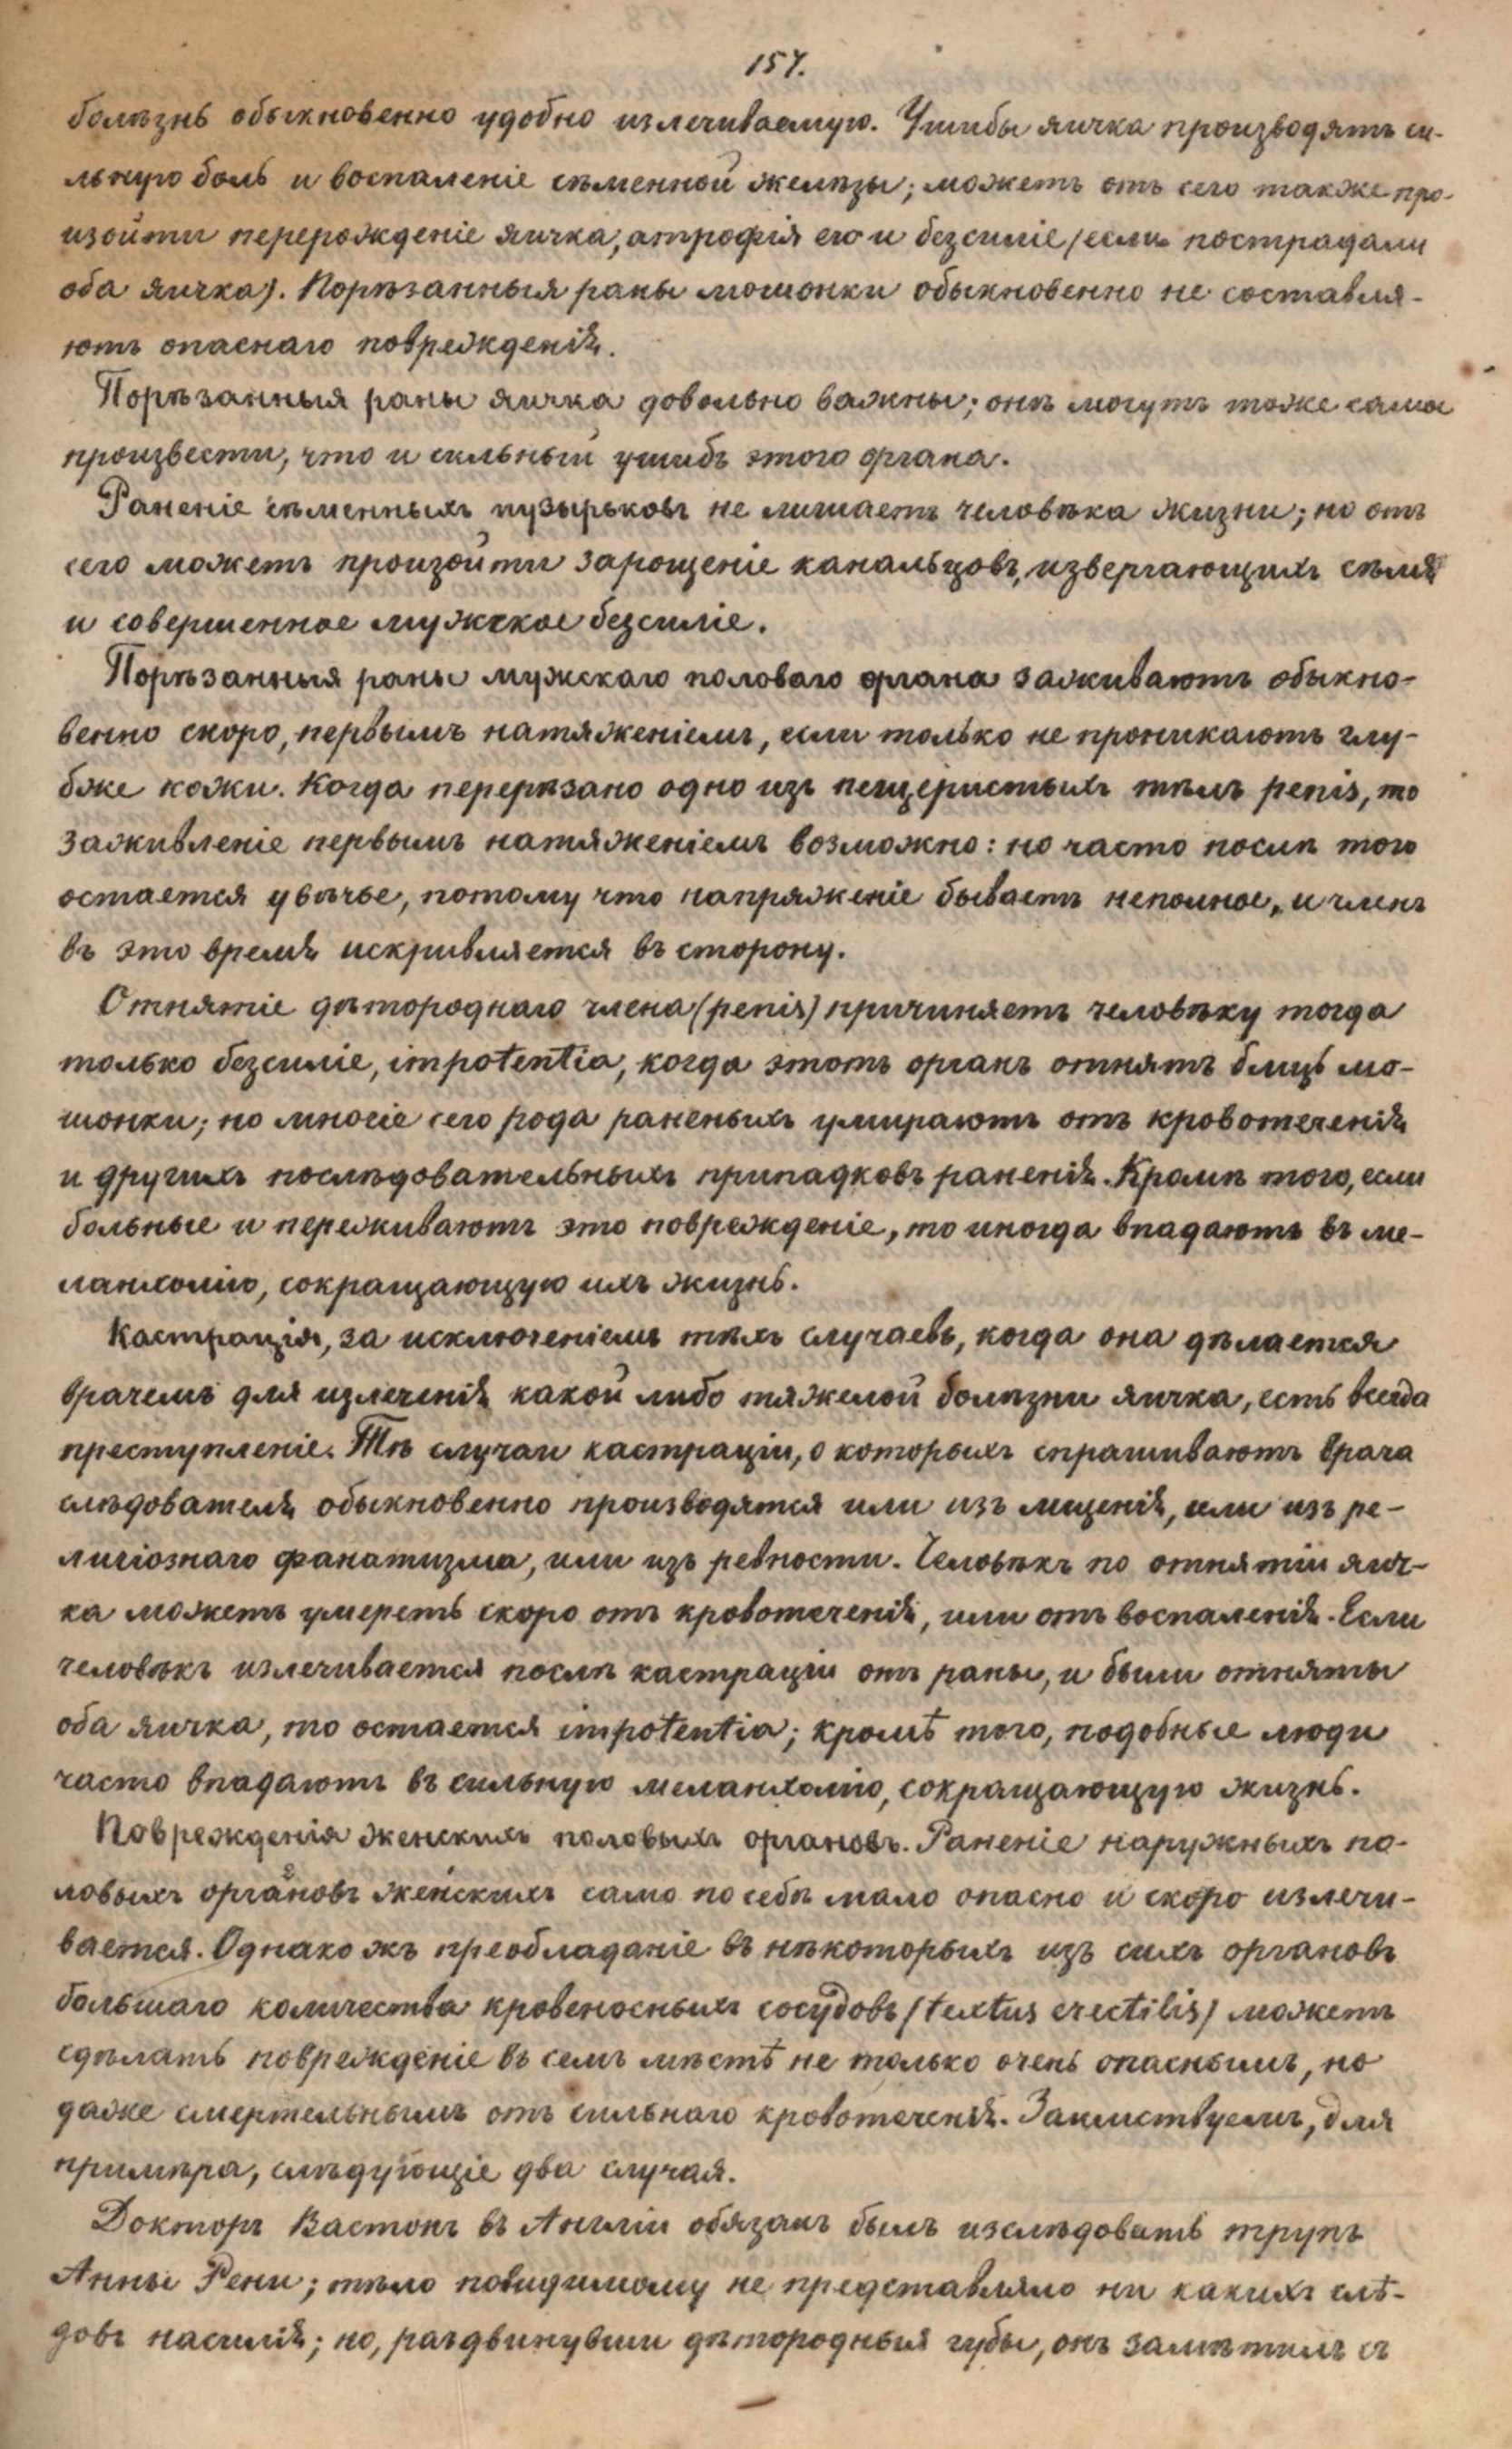 157.
болѣзнь обыкновенно удобно излечиваемую. Ушибы яичка производятъ си-
льную боль и воспаленіе сѣменной желѣзы; можетъ отъ сего также про-
изойти перерожденіе яичка, атрофія его и безсиліе (если пострадали
оба яичка). Порѣзанныя раны мошонки обыкновенно не составля-
ютъ опаснаго поврежденія.
Порѣзанныя раны яичка довольно важны; онѣ могутъ тоже самое
произвести, что и сильный ушибъ этого органа.
Раненіе сѣменныхъ пузырьковъ не лишаетъ человѣка жизни; но отъ
сего можетъ произойти зарощеніе канальцовъ, извергающихъ сѣмя
и совершенное мужское безсиліе.
Порѣзанныя раны мужскаго половаго органа заживаютъ обыкно-
венно скоро, первымъ натяженіемъ, если только не проникаютъ глу-
бже кожи. Когда перерѣзано одно изъ пещеристыхъ тѣлъ penis, то
заживленіе первымъ натяженіемъ возможно: но часто послѣ того
остается увѣчье, потому что напряженіе бываетъ неполное, и членъ
въ это время искривляется въ сторону.
Отнятіе дѣтороднаго члена (penis) причиняетъ человѣку тогда
только безсиліе, impotentia, когда этотъ органъ отнятъ близь мо-
шонки; но многіе сего рода раненыхъ умираютъ отъ кровотеченія
и другихъ послѣдовательныхъ припадковъ раненія. Кромѣ того, если
больные и переживаютъ это поврежденіе, то иногда впадаютъ въ ме-
ланхолію, сокращающую ихъ жизнь.
Кастрація, за исключеніемъ тѣхъ случаевъ, когда она дѣлается
врачемъ для излеченія какой либо тяжелой болѣзни яичка, есть всегда
преступленіе. Тѣ случаи кастраціи, о которыхъ спрашиваютъ врача
слѣдователя обыкновенно производятся или изъ мщенія, или изъ ре-
лигіознаго фанатизма, или изъ ревности. Человѣкъ по отнятіи яич-
ка можетъ умереть скоро отъ кровотеченія, или отъ воспаленія. Если
человѣкъ излечивается послѣ кастраціи отъ раны, и были отняты
оба яичка, то остается impotentia; кромѣ того, подобные люди
часто впадаютъ въ сильную меланхолію, сокращающую жизнь.
Поврежденія женскихъ половыхъ органовъ. Раненіе наружныхъ по-
ловыхъ органовъ женскихъ само по себѣ мало опасно и скоро излечи-
вается. Однако жъ преобладаніе въ нѣкоторыхъ изъ сихъ органовъ
большаго количества кровеносныхъ сосудовъ (textus erectilis) можетъ
сдѣлать поврежденіе въ семъ мѣстѣ не только очень опаснымъ, но
даже смертельнымъ отъ сильнаго кровотеченія. Заимствуемъ, для
примѣра, слѣдующіе два случая.
Докторъ Вастонъ въ Англіи обязанъ былъ изслѣдовать трупъ
Анны Рени; тѣло повидимому не представляло ни какихъ слѣ-
довъ насилія; но, раздвинувши дѣтородныя губы, онъ замѣтилъ съ